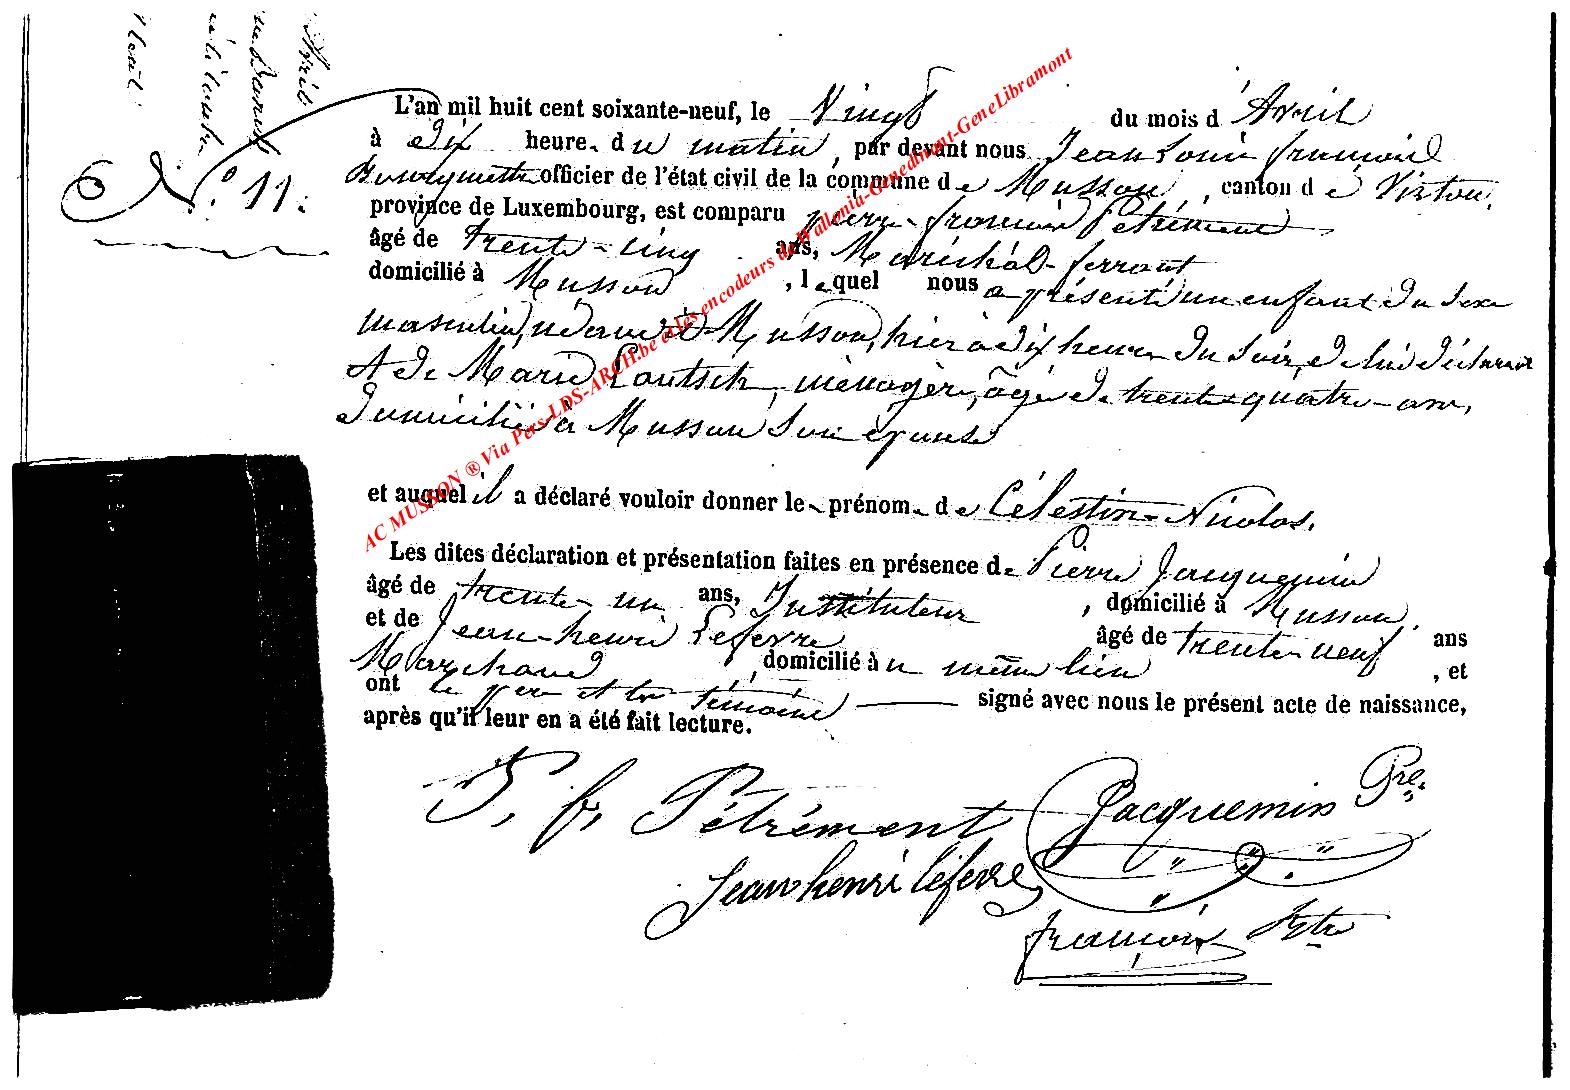 Avril
N.° 11.
L'an mil huit cent soixante-neuf, le Vingt du mois d' Avril
à dix heure. du matin, par devant nous Jean Louis françois
officier de l'état civil de la commune de Musson, canton de Virton,
province de Luxembourg, est comparu pierre-françois Pétrément
âgé de trente-cinq ans, Maréchal-ferrant
domicilié à Musson, lequel nous a présenté un enfant du sexe
masculin, né à Musson, hier à dix heures du soir, de lui déclarant
et de Marie Loutsch, ménagère, âgé de trente quatre-ans,
domicilié à Musson son épouse
et auquel il a déclaré vouloir donner le prénom de Célestin-Nicolas.
Les dites déclaration et présentation faites en présence de Pierre Jacquemin
âgé de trente un ans, Instituteur, domicilié à Musson.
et de Jean-henri Lefevre âgé de trente-neuf ans
Marchand, domicilié au même lieu, et
ont le père et les témoins signé avec nous le présent acte de naissance,
après qu'il leur en a été fait lecture.
P. f. Pétrément Jacquemin Pre
Jean henri lefevre
françois
AC MUSSON ® Via Pers-LDS-ARCH.be et les encodeurs de Wallonia-Genedinant-GeneLibramont